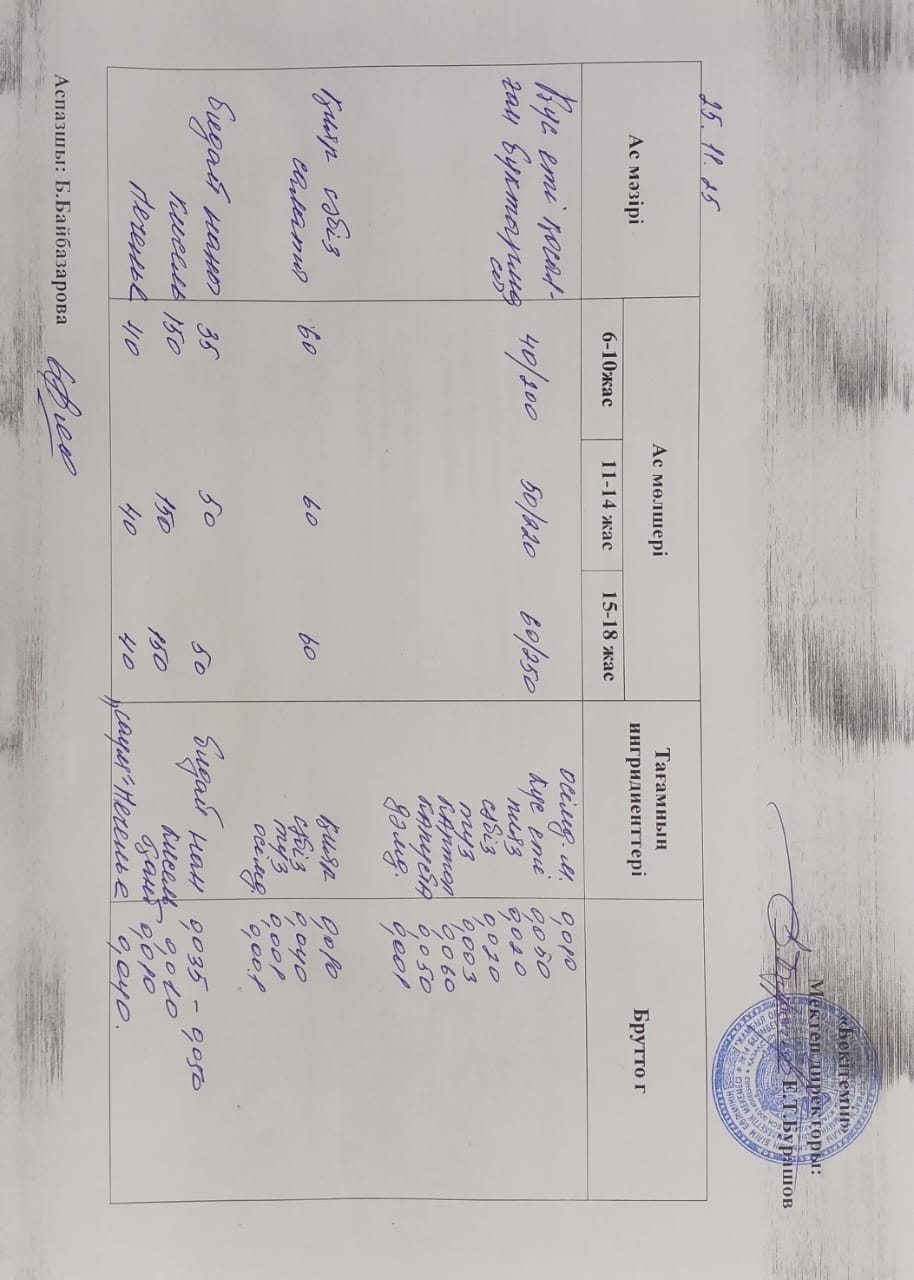 «Бекітемін»
Мектеп директоры:
Е.Т.Бурашов
25.11.25
Ас мәзірі
Ас мөлшері
6-10жас
11-14 жас
15-18 жас
Тағамның
ингридиенттері
Брутто г
Құс еті қосыл-
ған
40/200 50/220 60/250
өсімд. м. 0,010
Құс еті 0,050
пияз 0,020
сәбіз 0,020
тұз 0,003
картоп 0,060
капуста 0,050
дәмд. 0,001
Қияр сәбіз
салаты 60 60 60
қияр 0,010
сәбіз 0,040
тұз 0,001
өсімд. 0,001
Бидай наны 35 50 50 Бидай нан 0,035 - 0,050
кисель 150 150 150 кисель 0,020
0,010
Печенье 40 40 40 Печенье 0,040.
Аспазшы: Б.Байбазарова